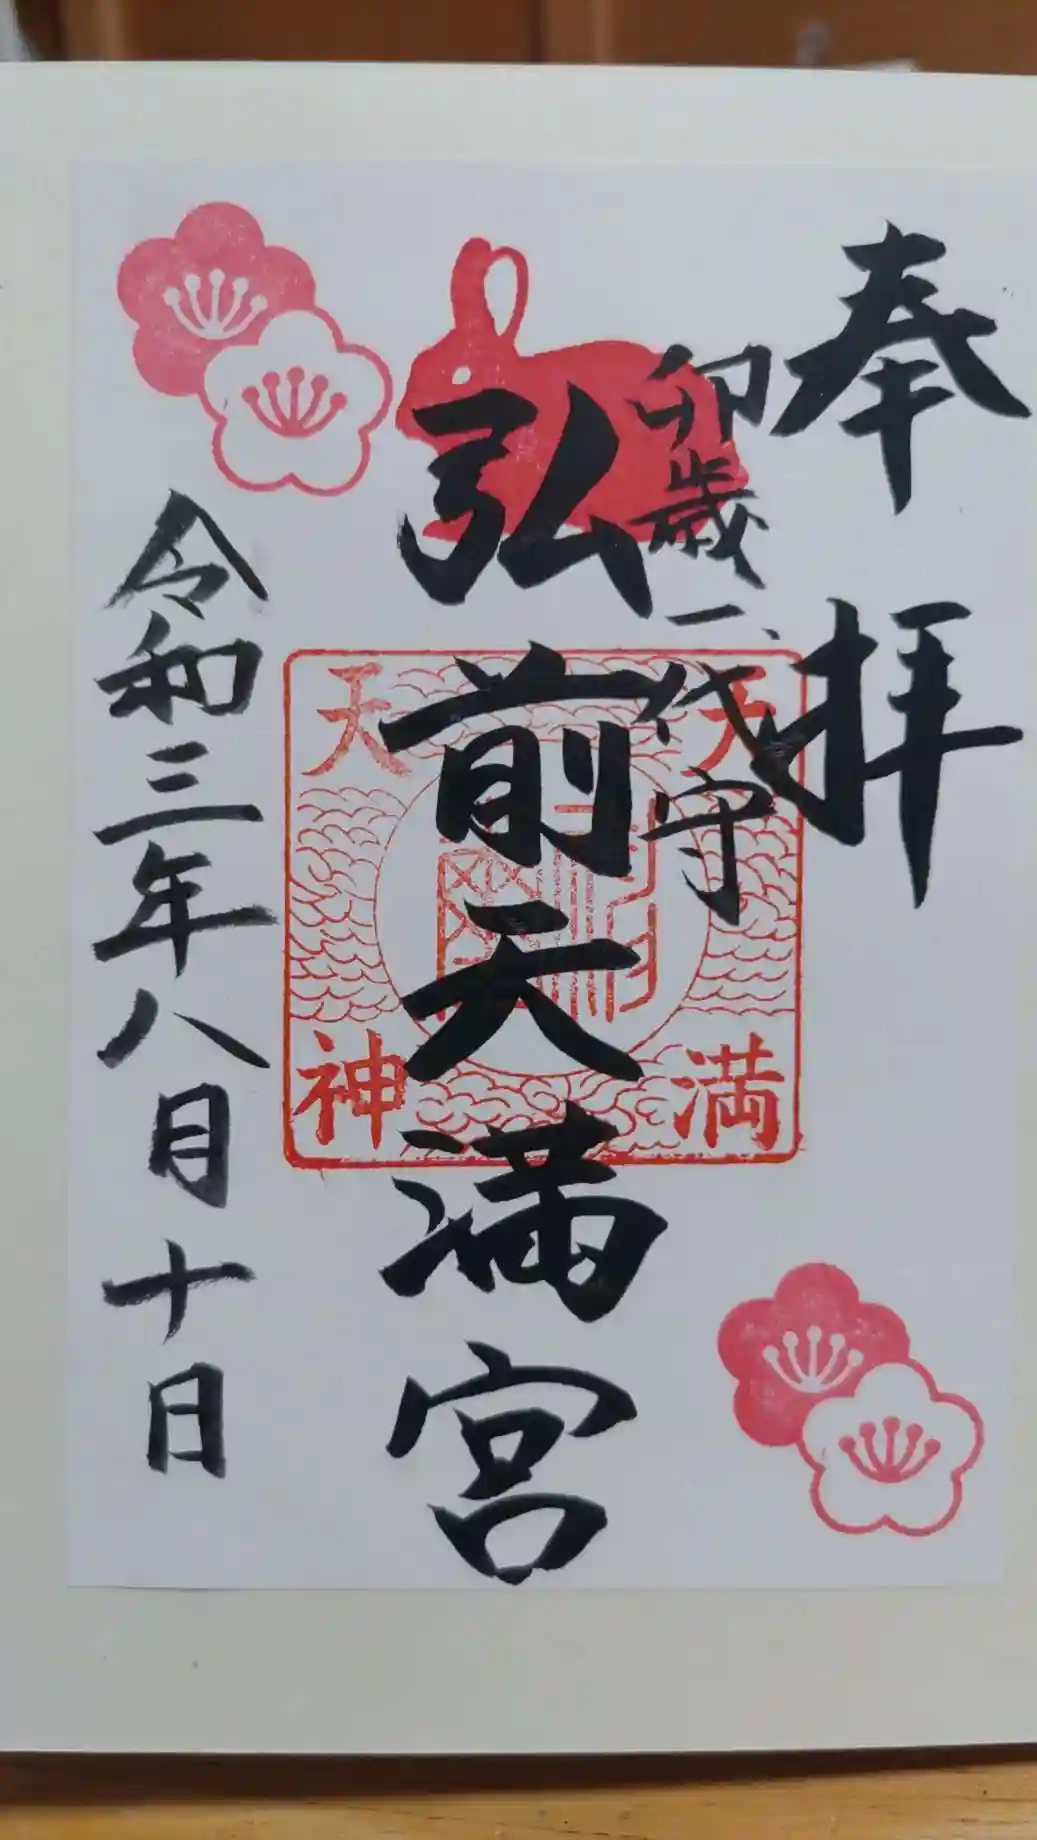 奉拝
卯歳一代守
弘前天満宮
天満
天神
令和三年八月十日